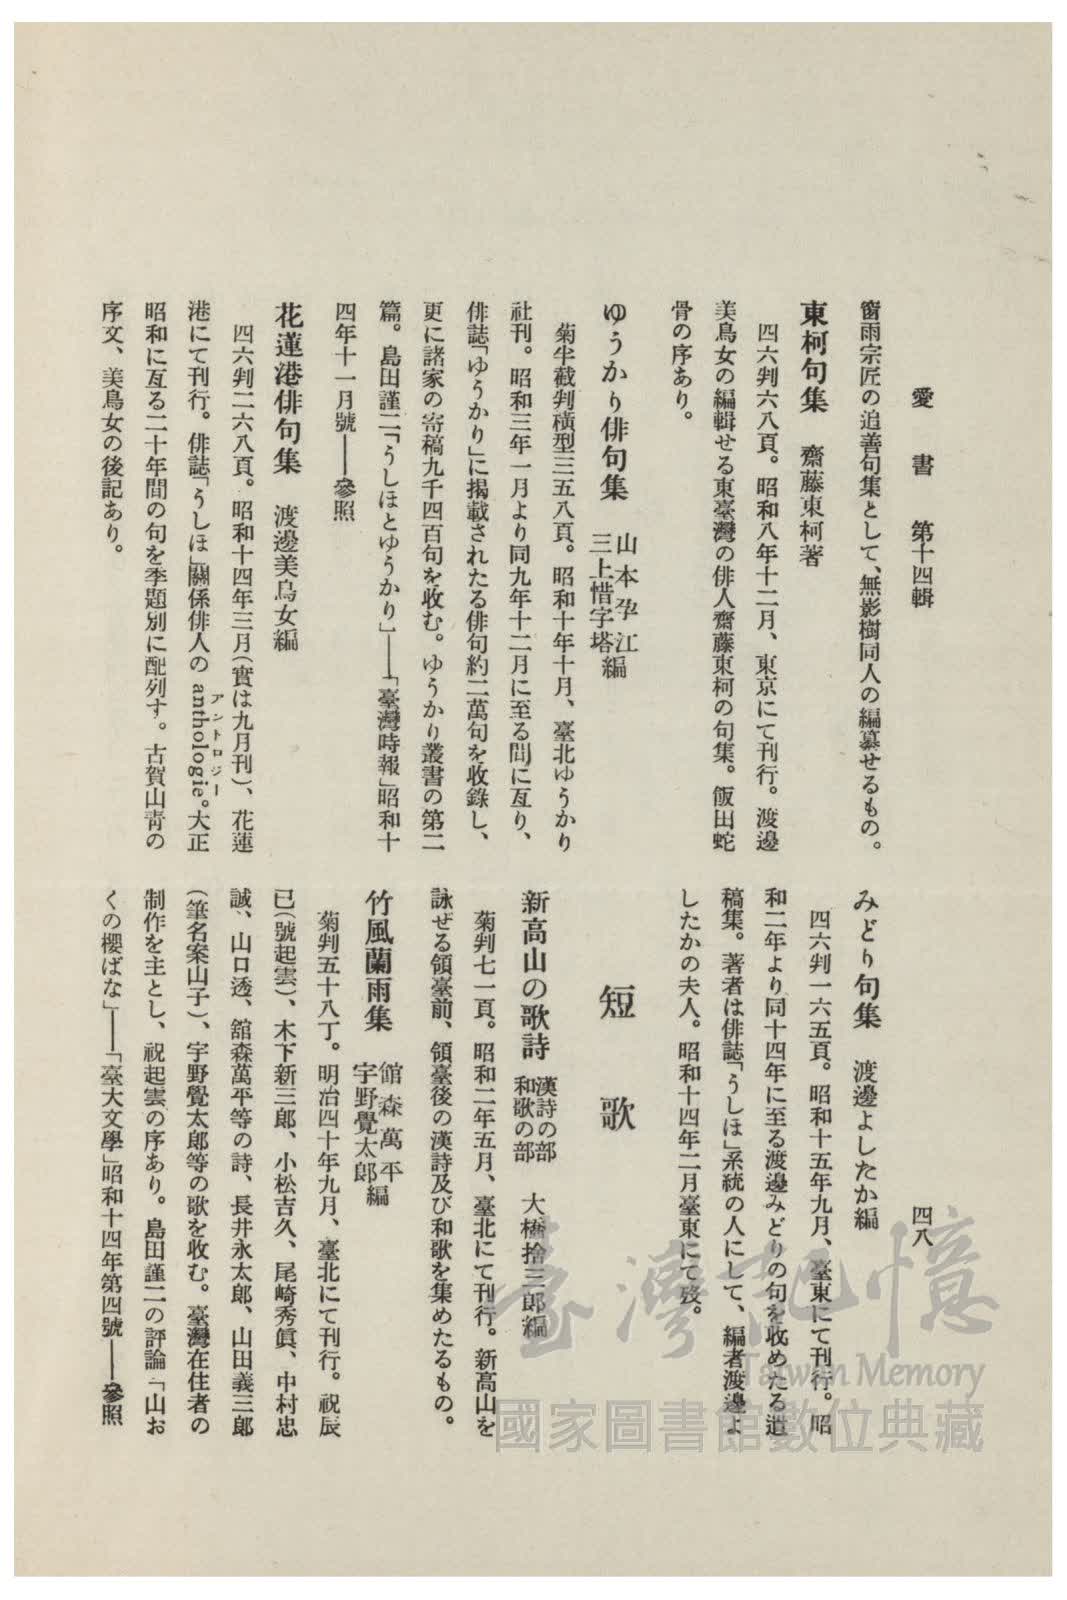 愛書 第十四輯
四八
窗雨宗匠の追善句集として、無影樹同人の編纂せるもの。
東柯句集 齋藤東柯著
四六判六八頁。昭和八年十二月、東京にて刊行。渡邊
美鳥女の編輯せる東臺灣の俳人齋藤東柯の句集。飯田蛇
骨の序あり。
ゆうかり俳句集 山本孕江
三上惜字塔編
菊半截判橫型三五八頁。昭和十年十月、臺北ゆうかり
社刊。昭和三年一月より同九年十二月に至る間に亙り、
俳誌「ゆうかり」に揭載されたる俳句約二萬句を收錄し、
更に諸家の寄稿九千四百句を收む。ゆうかり叢書の第二
篇。島田謹二「うしほとゆうかり」――「臺灣時報」昭和十
四年十一月號――參照
花蓮港俳句集 渡邊美鳥女編
四六判二六八頁。昭和十四年三月(實は九月刊)、花蓮
港にて刊行。俳誌「うしほ」關係俳人の anthologie。大正
アントロジー
昭和に亙る二十年間の句を季題別に配列す。古賀山靑の
序文、美鳥女の後記あり。
みどり句集 渡邊よしたか編
四六判一六五頁。昭和十五年九月、臺東にて刊行。昭
和二年より同十四年に至る渡邊みどりの句を收めたる遺
稿集。著者は俳誌「うしほ」系統の人にして、編者渡邊よ
したかの夫人。昭和十四年二月臺東にて歿。
短歌
新高山の歌詩 漢詩の部
和歌の部 大橋捨三郎編
菊判七一頁。昭和二年五月、臺北にて刊行。新高山を
詠ぜる領臺前、領臺後の漢詩及び和歌を集めたるもの。
竹風蘭雨集 館森萬平
宇野覺太郎編
菊判五十八丁。明治四十年九月、臺北にて刊行。祝辰
已(號起雲)、木下新三郎、小松吉久、尾崎秀眞、中村忠
誠、山口透、舘森萬平等の詩、長井永太郎、山田義三郎
(筆名案山子)、宇野覺太郎等の歌を收む。臺灣在住者の
制作を主とし、祝起雲の序あり。島田謹二の評論「山お
くの櫻ばな」――「臺大文學」昭和十四年第四號――參照
臺灣記憶
Taiwan Memory
國家圖書館數位典藏